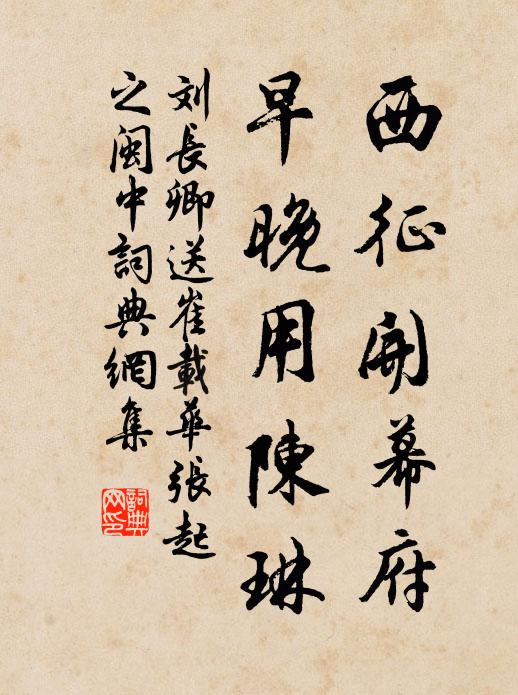 西征開幕府
早晚用陳琳
刘長卿送崔載華張起
之閩中詞典網集
詞典网印